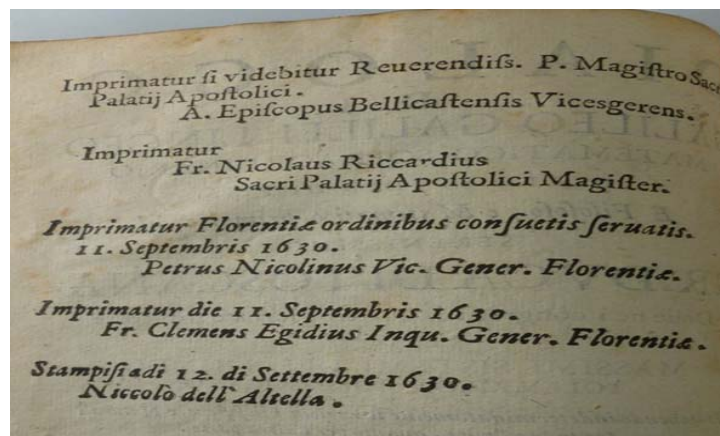 Imprimatur ſi videbitur Reuerendiſs. P. Magiſtro Sacr
Palatij Apoſtolici.
A. Epiſcopus Bellicaſtenſis Vicesgerens.
Imprimatur
Fr. Nicolaus Riccardius
Sacri Palatij Apoſtolici Magiſter.
Imprimatur Florentiæ ordinibus conſuetis ſeruatis.
11. Septembris 1630.
Petrus Nicolinus Vic. Gener. Florentiæ.
Imprimatur die 11. Septembris 1630.
Fr. Clemens Egidius Inqu. Gener. Florentiæ.
Stampiſi adì 12. di Settembre 1630.
Niccolò dell'Altella.